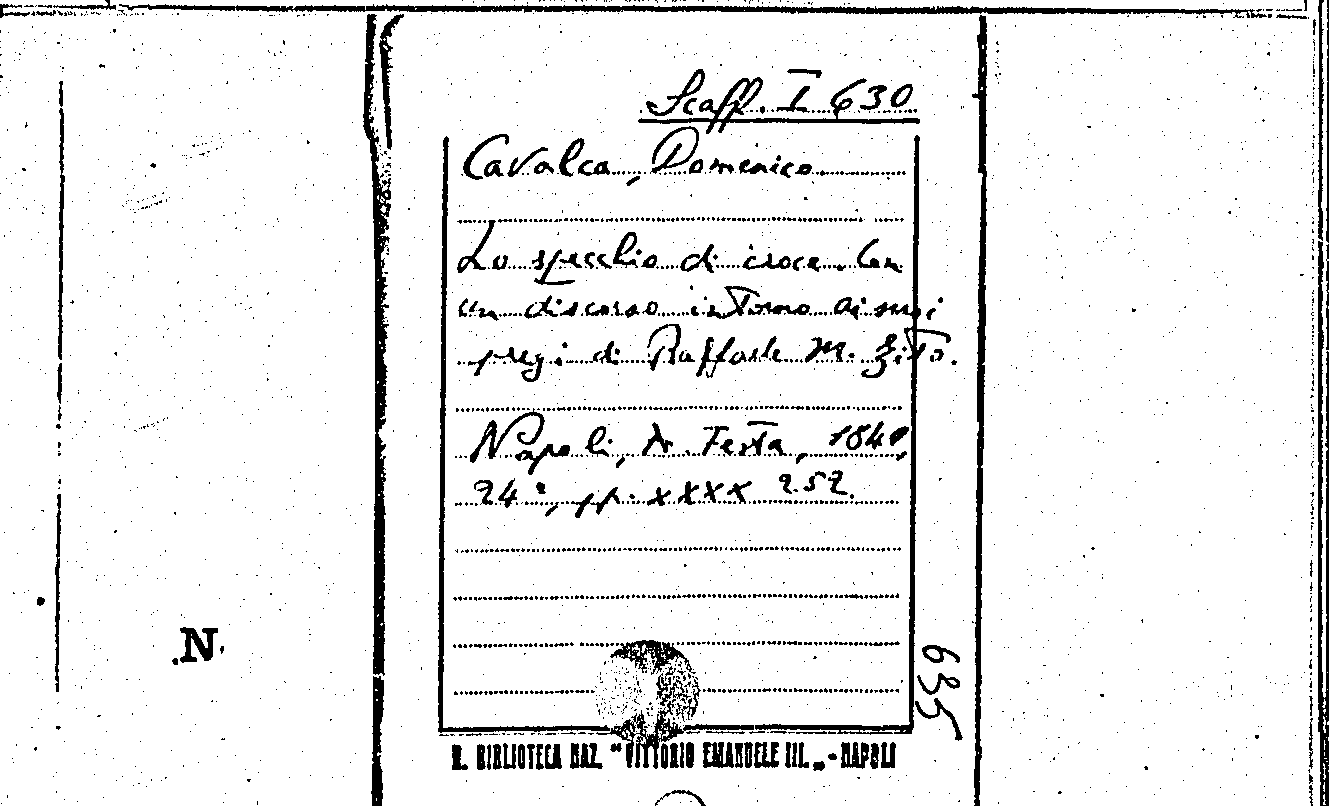 Scaff. I 630
Cavalca, Domenico.
Lo specchio di croce. Con
un discorso intorno ai suoi
pregi di Raffaele M. Zito.
Napoli, A. Festa, 1840,
24°, pp. XXXX 252.
635
N.
R. BIBLIOTECA NAZ. "VITTORIO EMANUELE III." - NAPOLI